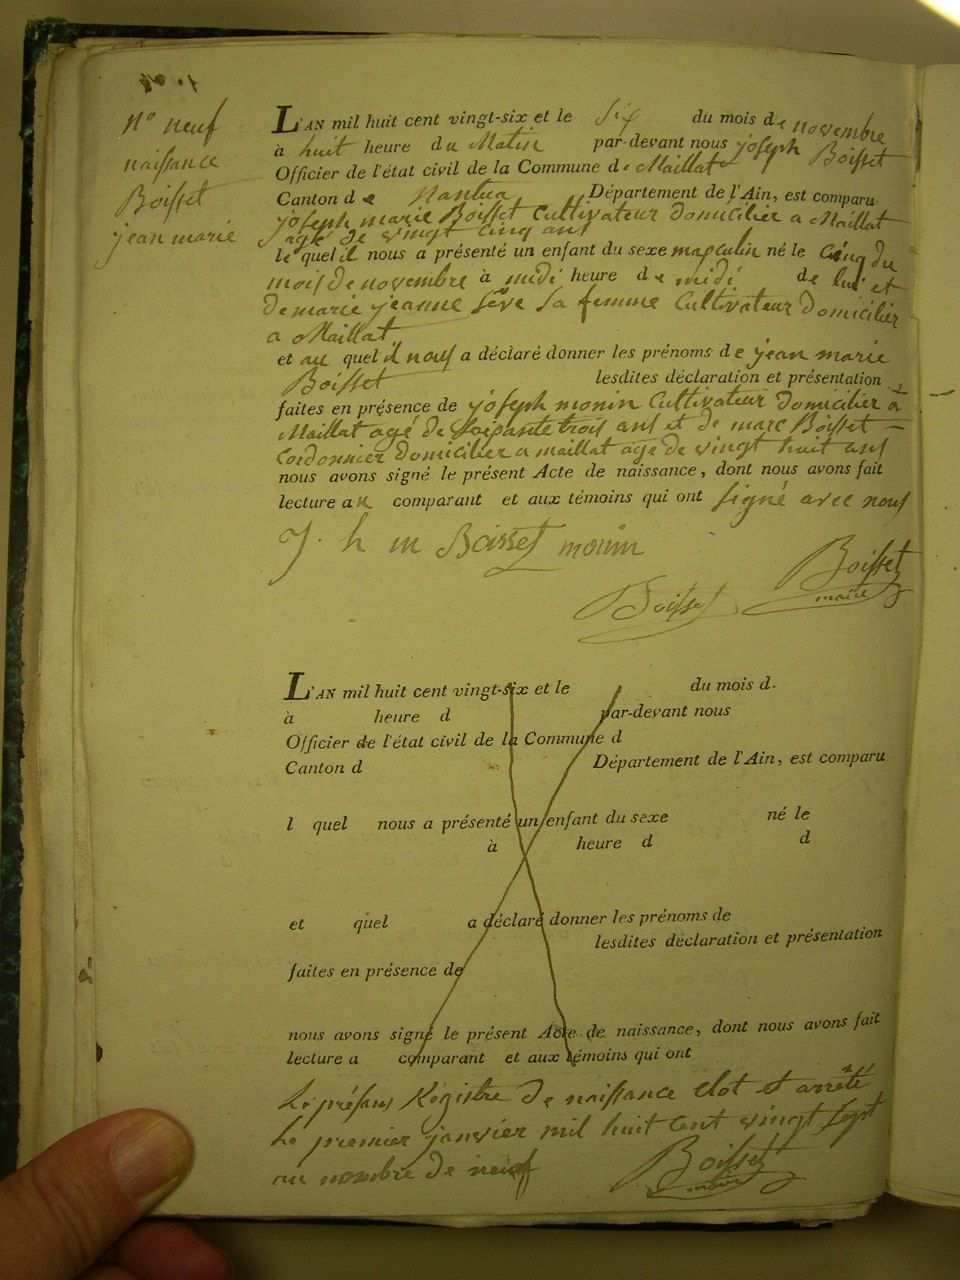 N° neuf
naissance
Boisset
jean marie
L'AN mil huit cent vingt-six et le six du mois de novembre
à huit heure du Matin par-devant nous joseph Boisset
Officier de l'état civil de la Commune de Maillat
Canton de Nantua Département de l'Ain, est comparu
joseph marie Boisset Cultivateur domicilier a Maillat
agé de vingt cinq ans
le quel il nous a présenté un enfant du sexe masculin né le cinq du
mois de novembre à midi heure de midi de lui et
de marie jeanne sève sa femme Cultivateur domicilier
a Maillat
et au quel il nous a déclaré donner les prénoms de jean marie
Boisset lesdites déclaration et présentation
faites en présence de joseph monin Cultivateur domicilier à
Maillat agé de soipante trois ans et de marc Boisset
Cordonnier domicilier a maillat age de vingt huit ans
nous avons signé le présent Acte de naissance, dont nous avons fait
lecture au comparant et aux témoins qui ont signé avec nous
J. h m Boisset monin
Boisset
maire
Boisset
L'AN mil huit cent vingt-six et le du mois d
à heure d par-devant nous
Officier de l'état civil de la Commune d
Canton d Département de l'Ain, est comparu
l quel nous a présenté un enfant du sexe né le
à heure d d
et quel a déclaré donner les prénoms de
lesdites déclaration et présentation
faites en présence de
nous avons signé le présent Acte de naissance, dont nous avons fait
lecture a comparant et aux témoins qui ont
Le présans Régistre de naissance Clot et arrêté
Le premier janvier mil huit Cent vingt sept
au nombre de neuf Boisset
maire